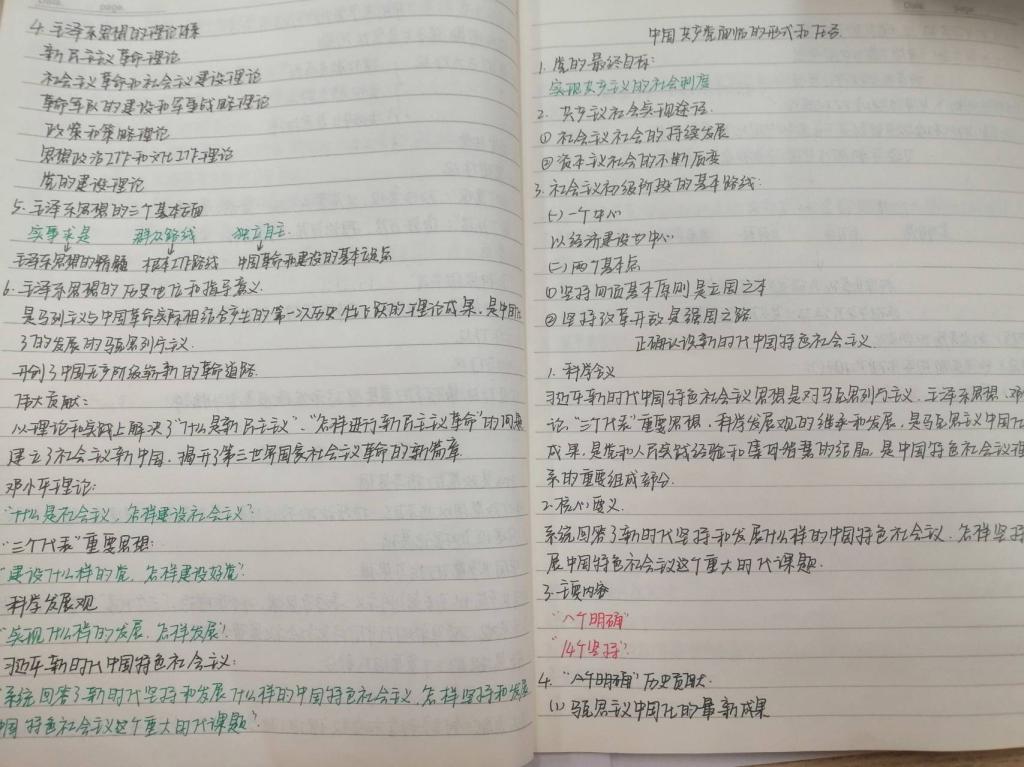 4. 毛泽东思想的理论体系
新民主主义革命理论
社会主义革命和社会主义建设理论
革命军队的建设和军事战略理论
政策和策略理论
思想政治工作和文化工作理论
党的建设理论
5. 毛泽东思想的三个基本方面
实事求是 群众路线 独立自主
毛泽东思想的精髓 根本工作路线 中国革命和建设的基本立足点
6. 毛泽东思想的历史地位和指导意义.
是马列主义与中国革命实际相结合产生的第一次历史性飞跃的理论成果,是中国化
了的发展的马克思列宁主义.
开创了中国无产阶级崭新的革命道路.
伟大贡献:
从理论和实践上解决了"什么是新民主主义"、"怎样进行新民主主义革命"的问题
建立了社会主义新中国. 揭开了第三世界国家社会主义革命的新篇章.
邓小平理论:
"什么是社会主义, 怎样建设社会主义?"
"三个代表"重要思想:
"建设什么样的党, 怎样建设好党?"
科学发展观
"实现什么样的发展, 怎样发展?"
习近平新时代中国特色社会主义:
"系统回答了新时代坚持和发展什么样的中国特色社会主义, 怎样坚持和发展
中国特色社会主义这个重大时代课题?"
中国共产党面临的形式和任务.
1. 党的最终目标:
实现共产主义的社会制度
2. 共产主义社会实现途径.
① 社会主义社会的持续发展
② 资本主义社会的不断质变
3. 社会主义初级阶段的基本路线:
(一) 一个中心
以经济建设为中心
(二) 两个基本点
① 坚持四项基本原则是立国之本
② 坚持改革开放是强国之路
正确认识新时代中国特色社会主义
1. 科学含义
习近平新时代中国特色社会主义思想是对马克思列宁主义、毛泽东思想、邓
论, "三个代表"重要思想, 科学发展观的继承和发展, 是马克思主义中国化
成果, 是党和人民实践经验和集体智慧的结晶, 是中国特色社会主义理
系的重要组成部分.
2. 核心要义.
系统回答了新时代坚持和发展什么样的中国特色社会主义, 怎样坚持
展中国特色社会主义这个重大时代课题.
3. 主要内容
"八个明确"
"14个坚持"
4. "八个明确"历史贡献.
(1) 马克思主义中国化的最新成果